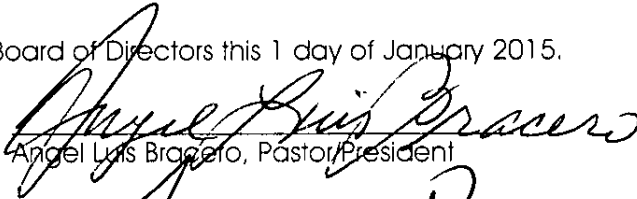 Board of Directors this 1 day of January 2015.
Angel Luis Bracero
Angel Luis Bracero, Pastor/President